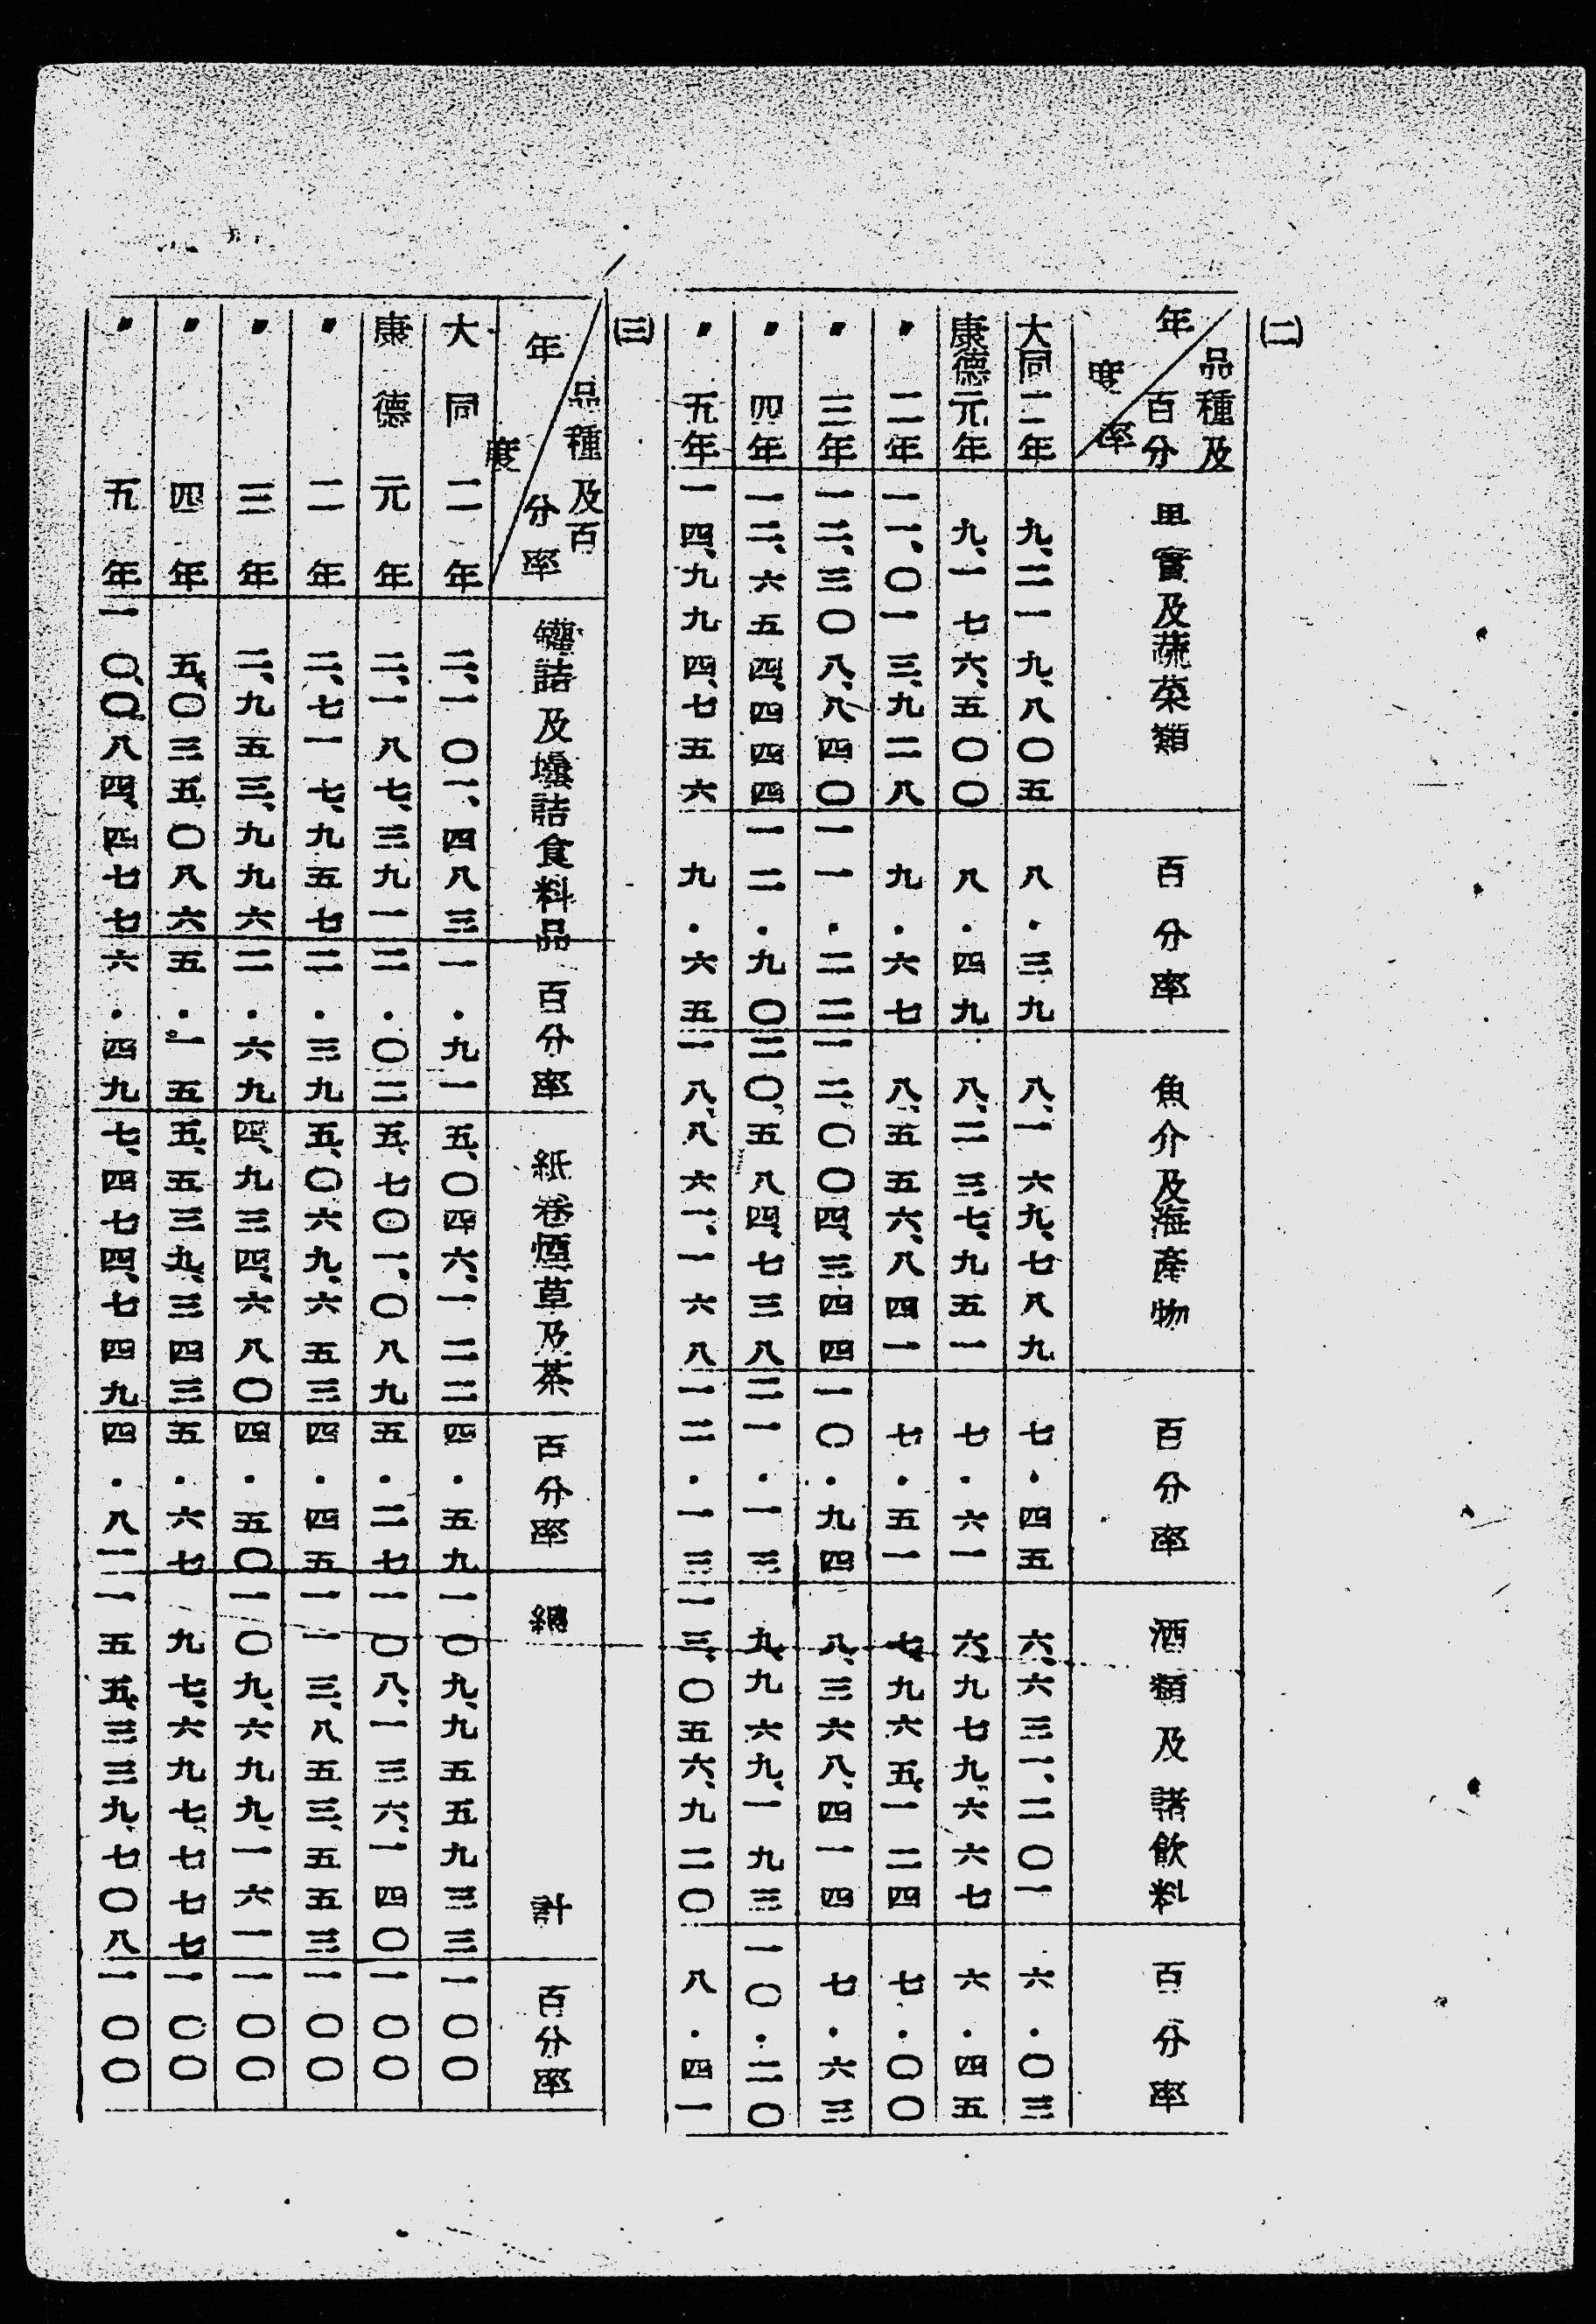 (二)
品種及
年 百分
度 率 果實及蔬菜類 百分率 魚介及海產物 百分率 酒類及諸飲料 百分率
大同二年 九、二一九、八〇五 八・三九 八、一六九、七八九 七・四五 六、六三一、二〇一 六・〇三
康德元年 九、一七六、五〇〇 八・四九 八、二三七、九五一 七・六一 六、九七九、六六七 六・四五
〃 二年 一一、〇一三、九二八 九・六七 八、五五六、八四一 七・五一 七、九六五、一二四 七・〇〇
〃 三年 一二、三〇八、八四〇 一一・二二 一二、〇〇四、三四四 一〇・九四 八、三六八、四一四 七・六三
〃 四年 一二、六五四、四四四 一二・九〇 二〇、五八四、七三八 二一・一三 九、九六九、一九三 一〇・二〇
〃 五年 一四、九九四、七五六 九・六五 一八、八六一、一六八 一二・一三 一三、〇五六、九二〇 八・四一
(三)
品種及百
年 分率
度 罐詰及壜詰食料品 百分率 紙卷煙草及茶 百分率 總計 百分率
大同二年 二、一〇一、四八三 一・九一 五、〇四六、一二二 四・五九 一〇九、九五五、九三三 一〇〇
康德元年 二、一八七、三九一 二・〇二 五、七〇一、〇八九 五・二七 一〇八、一三六、一四〇 一〇〇
〃 二年 二、七一七、九五七 二・三九 五、〇六九、六五三 四・四五 一一三、八五三、五五三 一〇〇
〃 三年 二、九五三、九九六 二・六九 四、九三四、六八〇 四・五〇 一〇九、六九九、一六一 一〇〇
〃 四年 五、〇三五、〇八六 五・一五 五、五三九、三四三 五・六七 九七、六九七、七七七 一〇〇
〃 五年 一〇、〇八四、四七七 六・四九 七、四七四、七四九 四・八一 一五五、三三九、七〇八 一〇〇